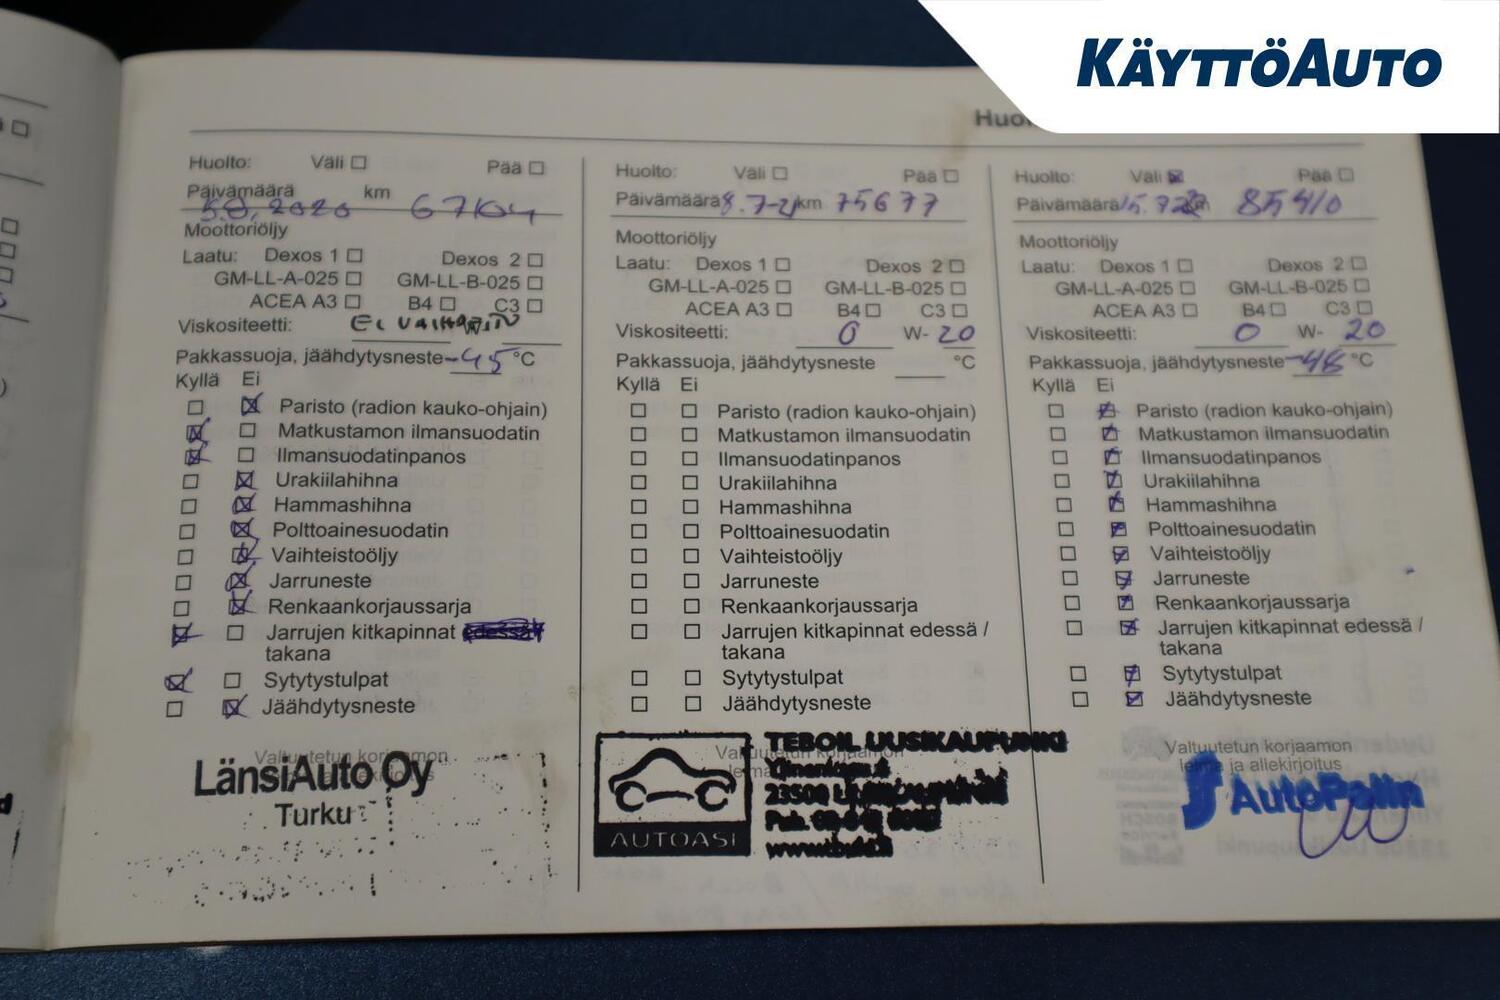 KÄYTTÖAUTO
Huolto: Väli Pää
Päivämäärä km
2020 67104
Moottoriöljy
Laatu: Dexos 1 Dexos 2
GM-LL-A-025 GM-LL-B-025
ACEA A3 B4 C3
Viskositeetti: Ei VAIHDETTU W-
Pakkassuoja, jäähdytysneste -45 °C
Kyllä Ei
Paristo (radion kauko-ohjain)
Matkustamon ilmansuodatin
Ilmansuodatinpanos
Urakiilahihna
Hammashihna
Polttoainesuodatin
Vaihteistoöljy
Jarruneste
Renkaankorjaussarja
Jarrujen kitkapinnat edessä /
takana
Sytytystulpat
Jäähdytysneste
Valtuutetun korjaamon
LänsiAuto Oy
Turku
Huolto: Väli Pää
Päivämäärä 8.7-21 km 75677
Moottoriöljy
Laatu: Dexos 1 Dexos 2
GM-LL-A-025 GM-LL-B-025
ACEA A3 B4 C3
Viskositeetti: 0 W- 20
Pakkassuoja, jäähdytysneste °C
Kyllä Ei
Paristo (radion kauko-ohjain)
Matkustamon ilmansuodatin
Ilmansuodatinpanos
Urakiilahihna
Hammashihna
Polttoainesuodatin
Vaihteistoöljy
Jarruneste
Renkaankorjaussarja
Jarrujen kitkapinnat edessä /
takana
Sytytystulpat
Jäähdytysneste
TEBOIL UUSIKAUPUNKI
23500
AUTOASI
Huolto: Väli Pää
Päivämäärä 15.7 km 85410
Moottoriöljy
Laatu: Dexos 1 Dexos 2
GM-LL-A-025 GM-LL-B-025
ACEA A3 B4 C3
Viskositeetti: 0 W- 20
Pakkassuoja, jäähdytysneste -48 °C
Kyllä Ei
Paristo (radion kauko-ohjain)
Matkustamon ilmansuodatin
Ilmansuodatinpanos
Urakiilahihna
Hammashihna
Polttoainesuodatin
Vaihteistoöljy
Jarruneste
Renkaankorjaussarja
Jarrujen kitkapinnat edessä /
takana
Sytytystulpat
Jäähdytysneste
Valtuutetun korjaamon
leima ja allekirjoitus
AutoPalin